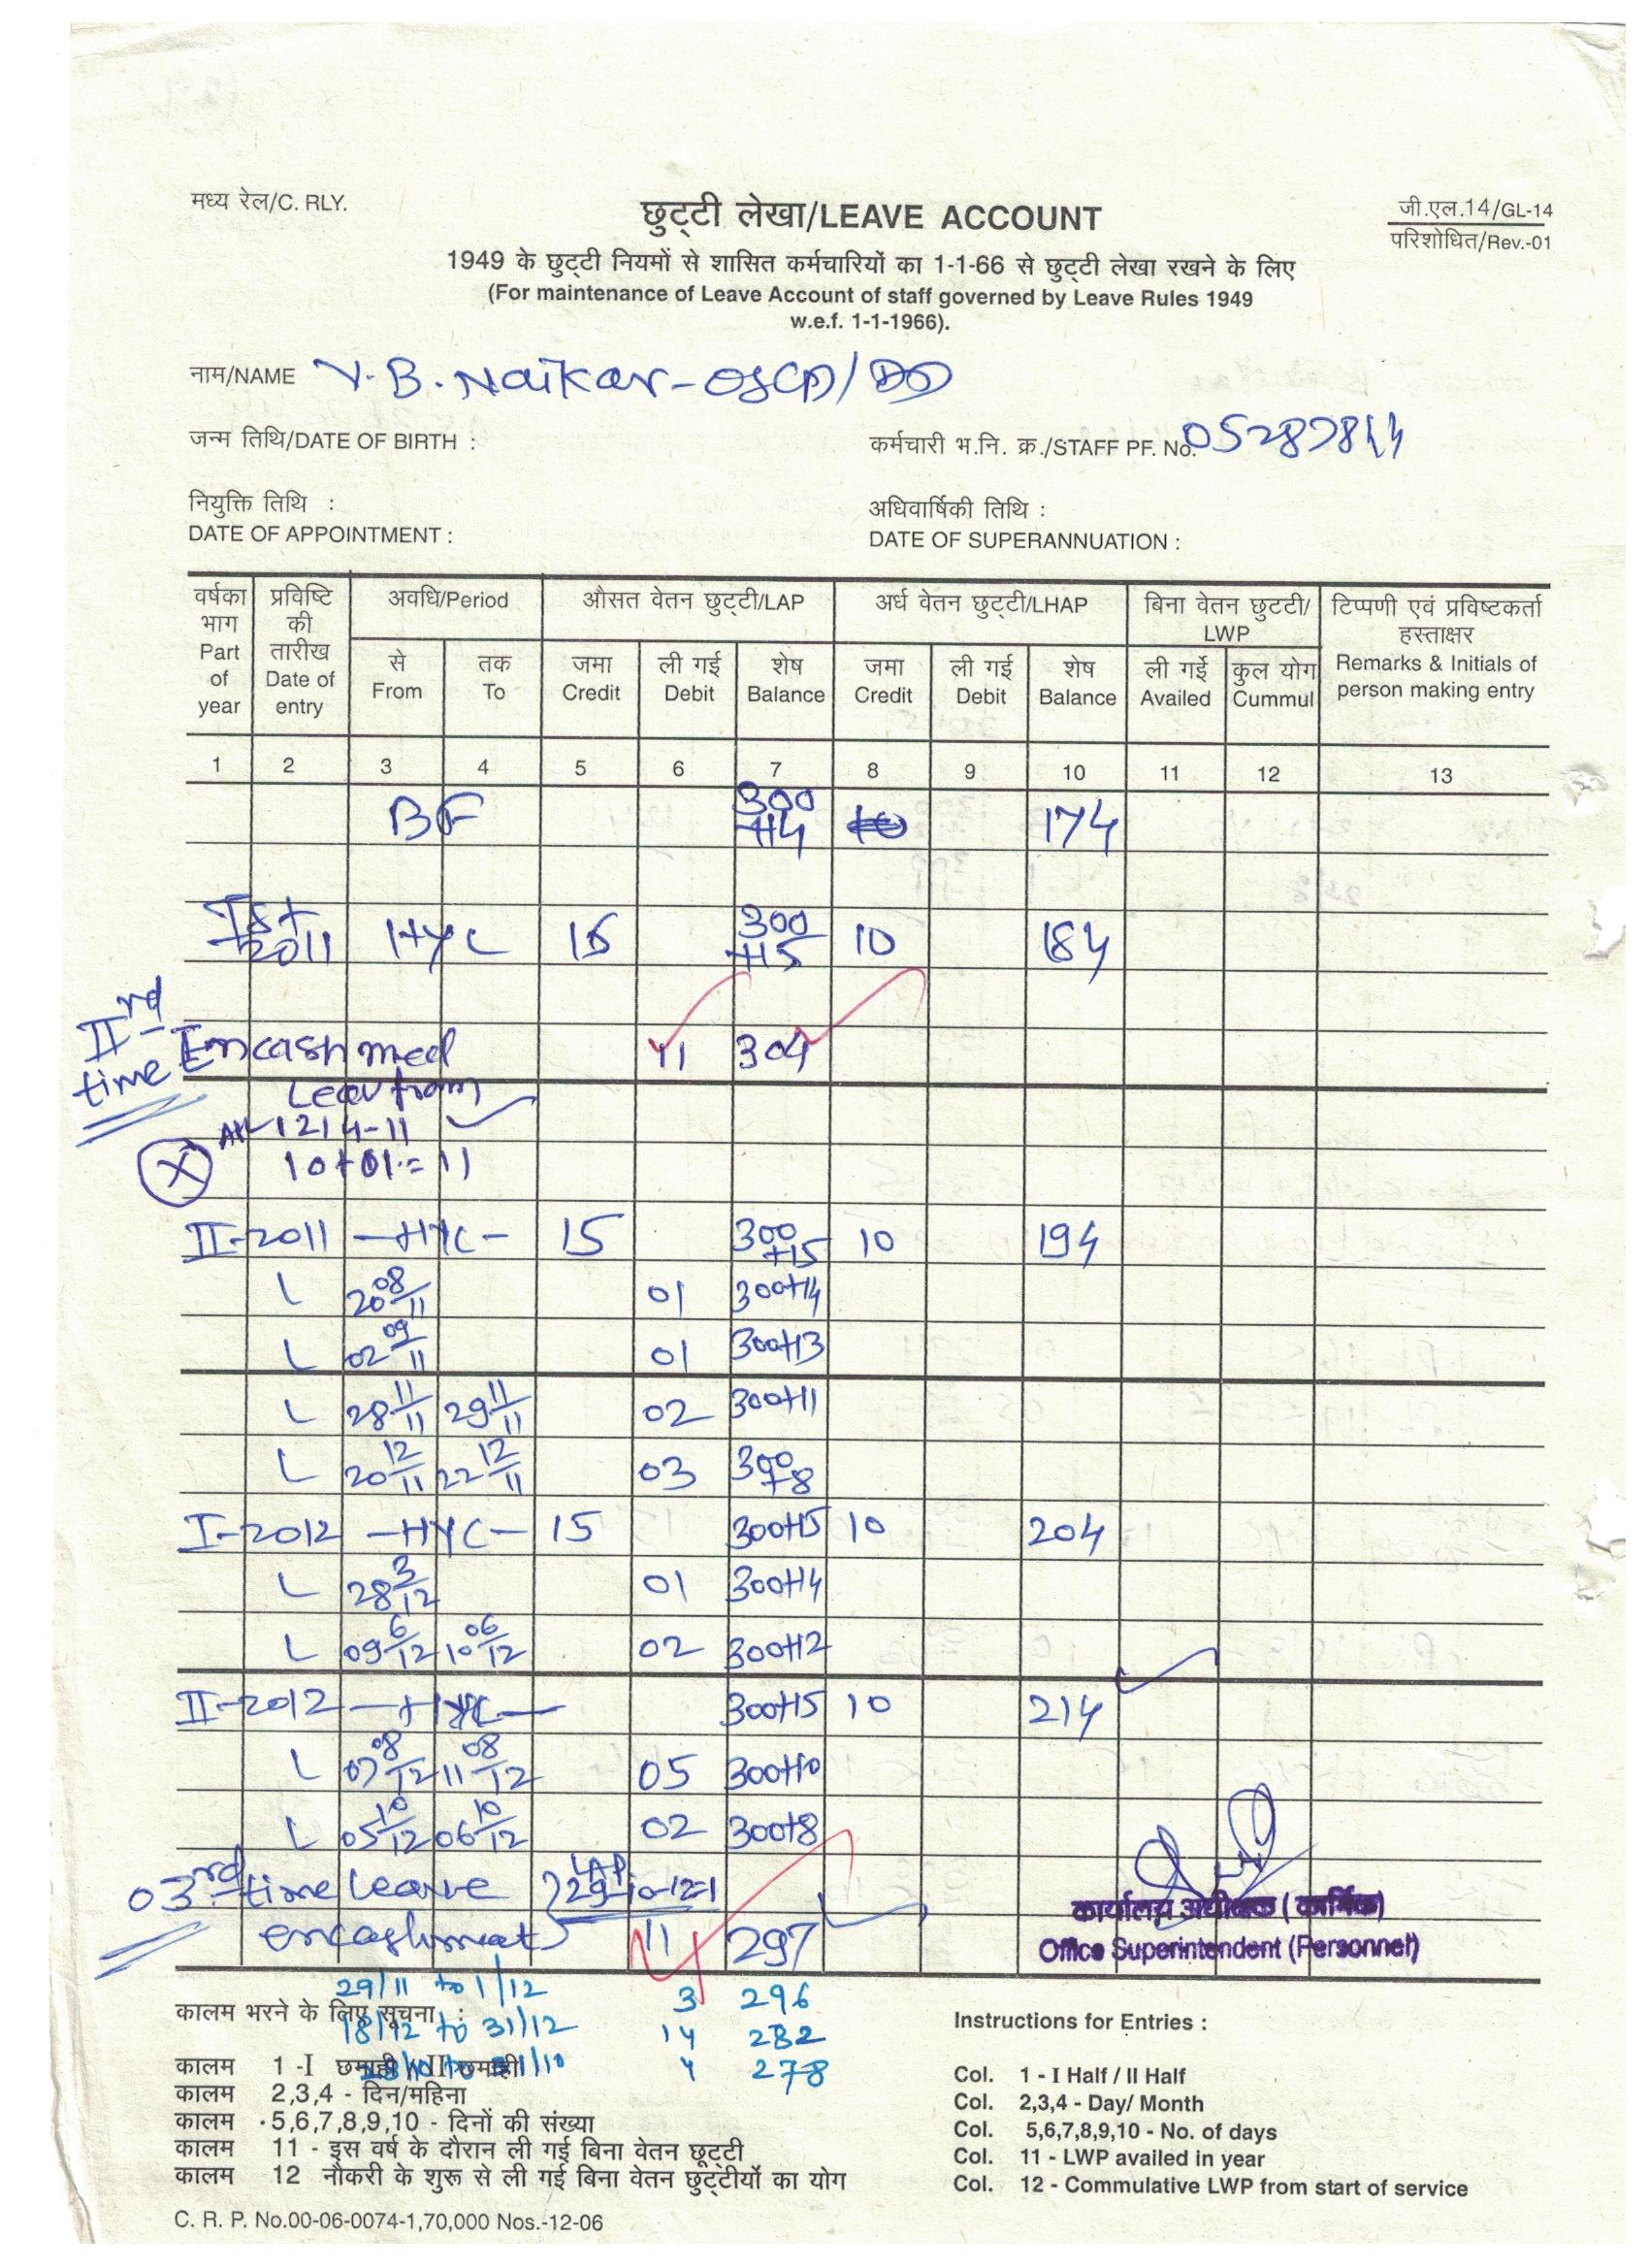 मध्य रेल/C. RLY.
छुट्टी लेखा/LEAVE ACCOUNT
जी.एल.14/GL-14
परिशोधित/Rev.-01
1949 के छुट्टी नियमों से शासित कर्मचारियों का 1-1-66 से छुट्टी लेखा रखने के लिए
(For maintenance of Leave Account of staff governed by Leave Rules 1949
w.e.f. 1-1-1966).
नाम/NAME V. B. Naikar - OS(P)/
जन्म तिथि/DATE OF BIRTH :
कर्मचारी भ.नि. क्र./STAFF PF. No.
नियुक्ति तिथि :
DATE OF APPOINTMENT :
अधिवार्षिकी तिथि :
DATE OF SUPERANNUATION :
वर्षका भाग Part of year | प्रविष्टि की तारीख Date of entry | अवधि/Period | औसत वेतन छुट्टी/LAP | अर्ध वेतन छुट्टी/LHAP | बिना वेतन छुटटी/ LWP | टिप्पणी एवं प्रविष्टकर्ता हस्ताक्षर Remarks & Initials of person making entry
से From | तक To | जमा Credit | ली गई Debit | शेष Balance | जमा Credit | ली गई Debit | शेष Balance | ली गई Availed | कुल योग Cummul
1 2 3 4 5 6 7 8 9 10 11 12 13
BF 300 +14 174
Ist 2011 HYC 15 300 +15 10 184
IIrd time Encashmed 11 304
Leav from
1214-11
10+01 = 11
X
II-2011 -HYC- 15 300 +15 10 194
L 20 08/11 01 300+14
L 02 09/11 01 300+13
L 28 11/11 29 11/11 02 300+11
L 20 12/11 22 12/11 03 300 +8
I-2012 -HYC- 15 300+15 10 204
L 28 3/12 01 300+14
L 09 6/12 10 06/12 02 300+12
II-2012 -HYC- 300+15 10 214
L 07 08/12 11 08/12 05 300+10
L 05 10/12 06 10/12 02 300+8
03rd time Leave LAP 29-10-12-1
encashment 11 297
कार्यालय अधीक्षक (कार्मिक)
Office Superintendent (Personnel)
29/11 to 1/12 3 296
कालम भरने के लिए सूचना :
18/12 to 31/12 14 282
4 278
कालम 1 -I छमाही / II छमाही
कालम 2,3,4 - दिन/महिना
कालम 5,6,7,8,9,10 - दिनों की संख्या
कालम 11 - इस वर्ष के दौरान ली गई बिना वेतन छूट्टी
कालम 12 नोकरी के शुरू से ली गई बिना वेतन छुट्टीयों का योग
Instructions for Entries :
Col. 1 - I Half / II Half
Col. 2,3,4 - Day/ Month
Col. 5,6,7,8,9,10 - No. of days
Col. 11 - LWP availed in year
Col. 12 - Commulative LWP from start of service
C. R. P. No.00-06-0074-1,70,000 Nos.-12-06